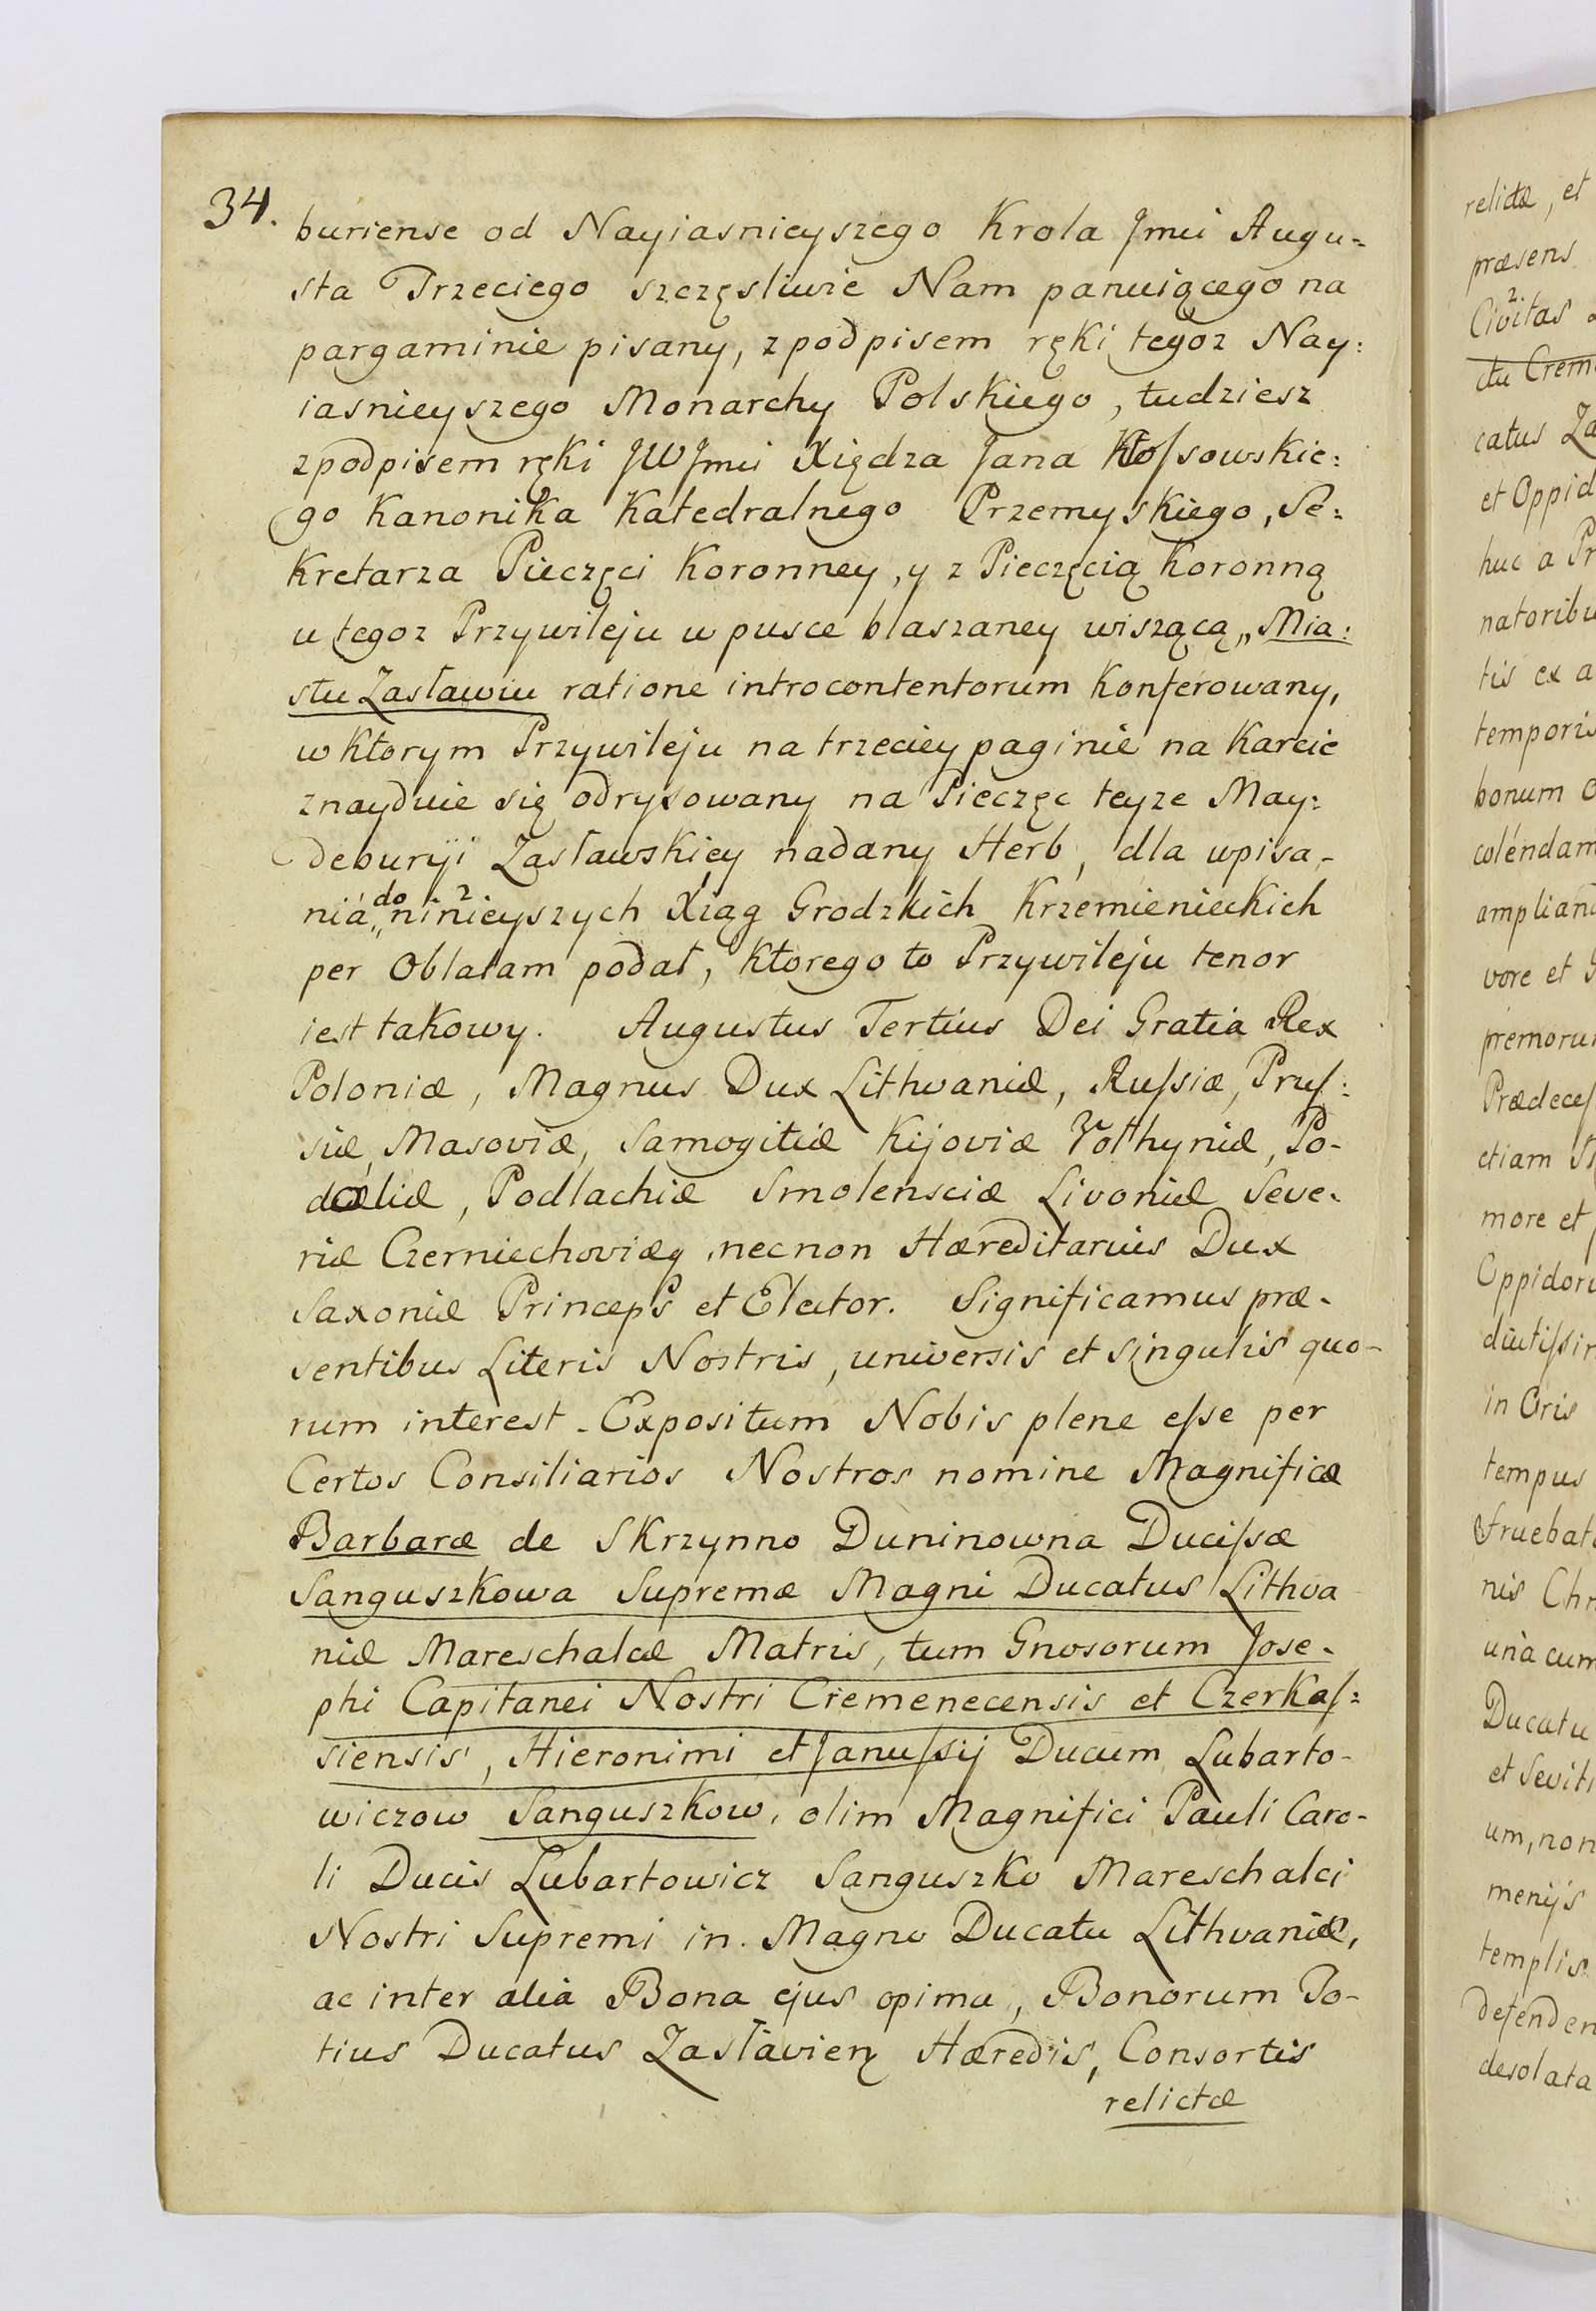 34.
buriense od Nayiasnieyszego Krola Jmci Augu=
sta Trzeciego szczęsliwie Nam panuiącego na
pargaminie pisany, z podpisem ręki tegoz Nay:
iasnieyszego Monarchy Polskiego, tudziesz
z podpisem ręki JWJmci Xiędza Jana Kłoſsowskie:
go Kanonika Katedralnego Przemyskiego, Se:
kretarza Pieczęci Koronney, y z Pieczęcią Koronną
u tegoz Przywileju w pusce blaszaney wiszącą„ Mia:
stu Zasławiu ratione introcontentorum konferowany,
w ktorym Przywileju na trzeciey paginie na karcie
znayduie się odrysowany na Pieczęc teyze May:
deburyi Zasławskiey nadany Herb, dla wpisa-
nia„ do ninieyszych Xiąg Grodzkich Krzemienieckich
per Oblatam podał, ktorego to Przywileju tenor
iest takowy. Augustus Tertius Dei Gratia Rex
Poloniæ, Magnus Dux Lithvaniæ, Ruſsiæ, Pruſ:
siæ, Masoviæ, Samogitiæ Kijoviæ Volhyniæ, Po-
doliæ, Podlachiæ Smolensciæ Livoniæ Seve-
riæ Czerniechoviæq, necnon Hæreditarius Dux
Saxoniæ Princeps et Elector. Significamus præ-
sentibus Literis Nostris, universis et singulis quo-
rum interest. Expositum Nobis plene eſse per
Certos Consiliarios Nostros nomine Magnificæ
Barbaræ de Skrzynno Duninowna Duciſsæ
Sanguszkowa Supremæ Magni Ducatus Lithva
niæ Mareschalcæ Matris, tum Gnosorum Jose-
phi Capitanei Nostri Cremenecensis et Czerkaſ:
siensis, Hieronimi et Januſsij Ducum Lubarto-
wiczow Sanguszkow, olim Magnifici Pauli Caro-
li Ducis Lubartowicz Sanguszko Mareschalci
Nostri Supremi in Magno Ducatu Lithvaniæ,
ac inter alia Bona ejus opima, Bonorum To-
tius Ducatus Zasłavien Hæredis, Consortis
relictæ
relictæ, et
præsens
Civitas
ctu Crem
catus Za
et Oppid
huc a Pr
natoribu
tis ex a
temporis
bonum
colendam
amplian
vore et
premoru
Prædeceſ
etiam
more et
Oppidoru
diutiſsi
in Oris
tempus
fruebat
nis Chr
una cum
Ducatu
et Seviti
um, non
menijs
templis
defenden
desolata